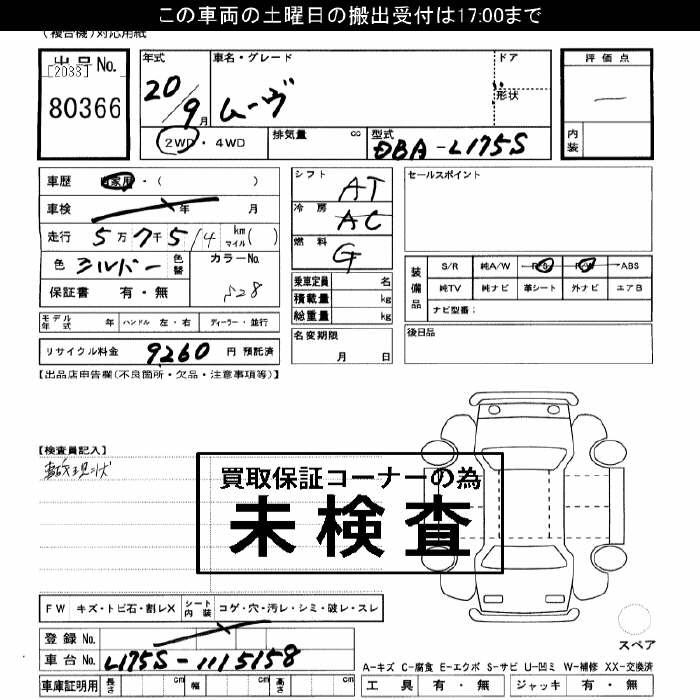 この車両の土曜日の搬出受付は17:00まで
(複合機)対応用紙
出品No.
[2033]
80366
年式
20/9月
車名・グレード
ムーヴ
ドア
形状
評価点
内装
2WD・4WD
排気量 cc
型式
DBA-L175S
車歴 自家用・( )
車検 年 月
走行 5万7千514 km マイル( )
色 シルバー 色替
カラーNo.
S28
保証書 有・無
シフト AT
冷房 AC
燃料 G
乗車定員 名
積載量 kg
総重量 kg
名変期限
月 日
セールスポイント
装備品
S/R 純A/W P/S P/W ABS
純TV 純ナビ 革シート 外ナビ エアB
ナビ型番:
後日品
モデル年式 年 ハンドル 左・右 ディーラー・並行
リサイクル料金 9260 円 預託済
【出品店申告欄(不良箇所・欠品・注意事項等)】
【検査員記入】
現状
買取保証コーナーの為
未検査
FW キズ・トビ石・割レX シート内装 コゲ・穴・汚レ・シミ・破レ・スレ
登録No.
車台No. L175S-1115158
車庫証明用 長さ cm 幅 cm 高さ cm
スペア
A-キズ C-腐食 E-エクボ S-サビ U-凹ミ W-補修 XX-交換済
工具 有・無 ジャッキ 有・無